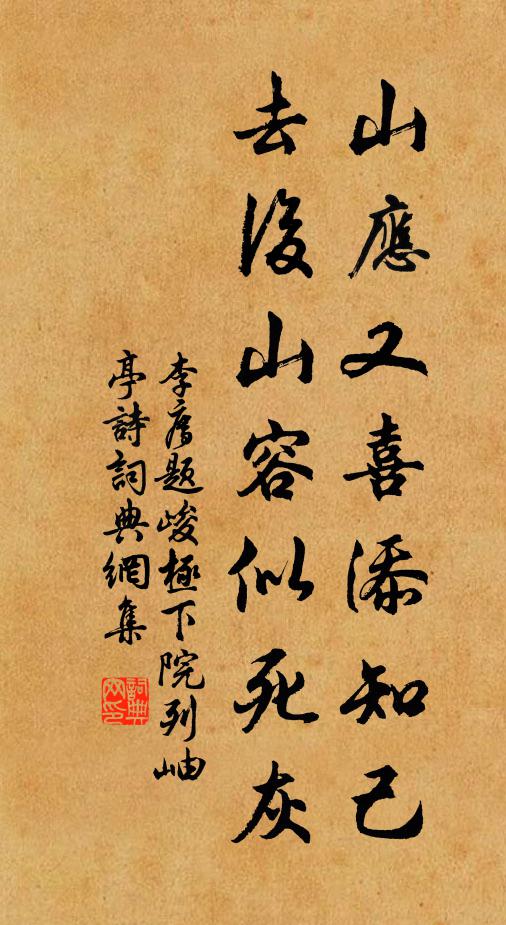 山應又喜添知己
去後山容似死灰
李廌題峻極下院列岫
亭詩詞典網集
詞典網印